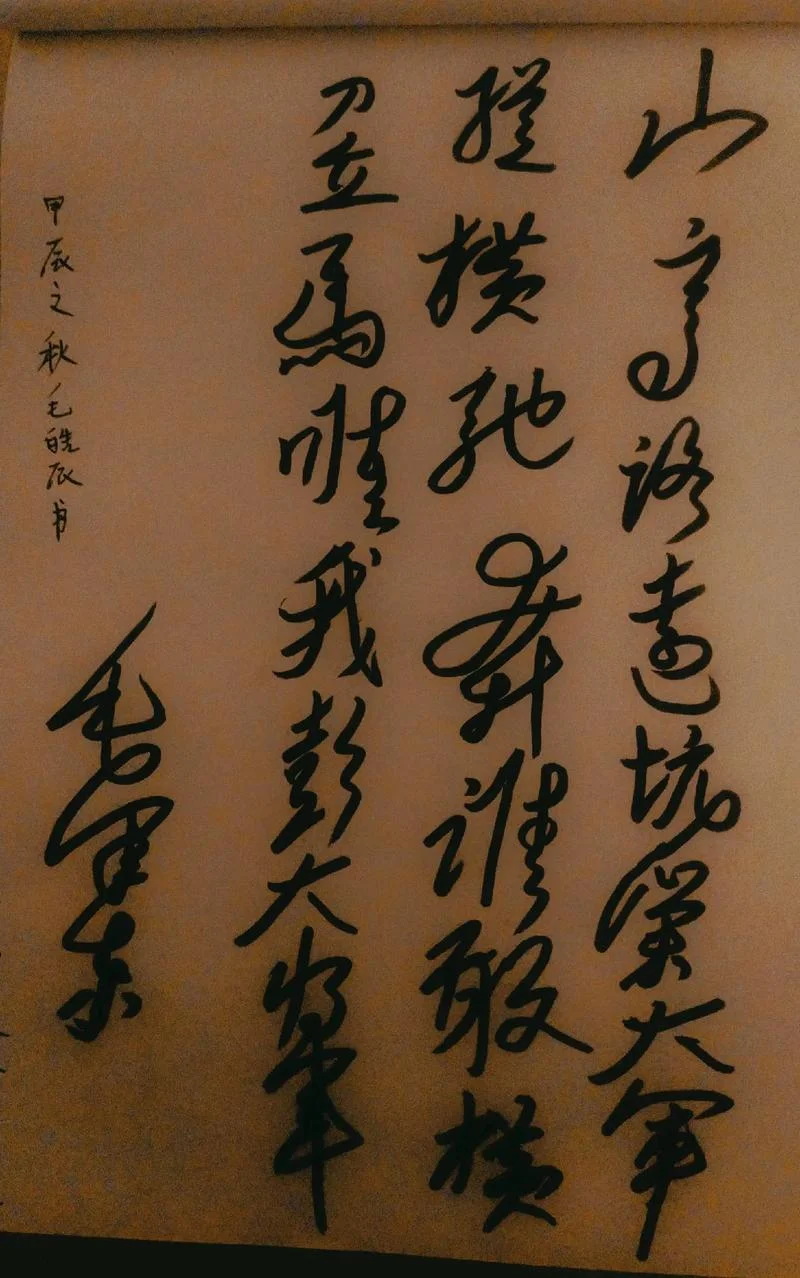 山高路遠坑深大軍
縱橫馳奔誰敢橫
刀立馬唯我彭大將軍
甲辰之秋毛皓辰书
毛澤东